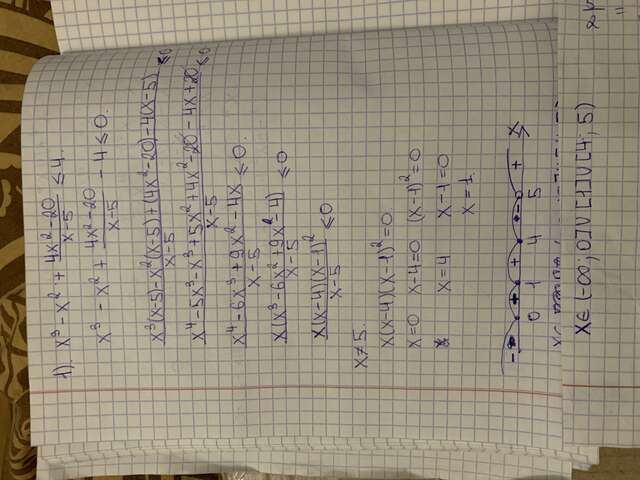 1). x³ - x² + (4x² - 20)/(x - 5) ≤ 4.
x³ - x² + (4x² - 20)/(x - 5) - 4 ≤ 0.
(x³(x-5) - x²(x-5) + (4x² - 20) - 4(x-5))/(x - 5) ≤ 0
(x⁴ - 5x³ - x³ + 5x² + 4x² - 20 - 4x + 20)/(x - 5) ≤ 0
(x⁴ - 6x³ + 9x² - 4x)/(x - 5) ≤ 0.
(x(x³ - 6x² + 9x² - 4))/(x - 5) ≤ 0
(x(x-4)(x-1)²)/(x - 5) ≤ 0
x ≠ 5.
x(x-4)(x-1)² = 0.
x = 0 x - 4 = 0 (x-1)² = 0
x = 4 x - 1 = 0
x = 1.
- + + - + x
0 1 4 5
x ∈ (-∞; 0] ∪ [1] ∪ [4; 5)